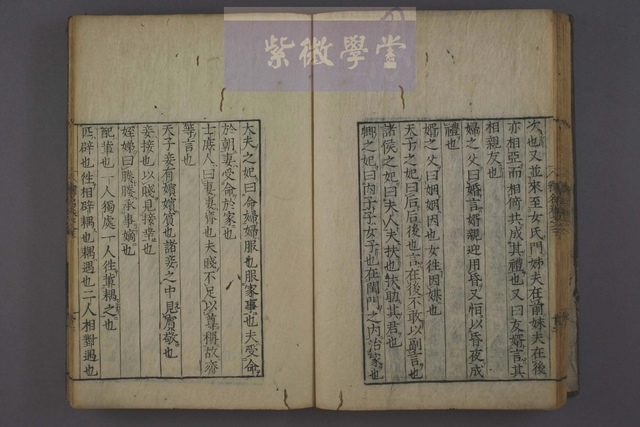 紫微學堂
次也又並來至女氏門姊夫在前妹夫在後
亦相亞而相倚共成其禮也又曰友壻言其
相親友也
婦之父曰婚言壻親迎用昏又恒以昏夜成
禮也
壻之父曰姻姻因也女往因媒也
天子之妃曰后后後也言在後不敢以副言也
諸侯之妃曰夫人夫扶也扶助其君也
卿之妃曰內子子女子也在閨門之內治家也
大夫之妃曰命婦婦服也服家事也夫受命
於朝妻受命於家也
士庶人曰妻妻齊也夫賤不足以尊稱故齊
等言也
天子妾有嬪嬪賓也諸妾之中見賓敬也
妾接也以賤見接幸也
姪娣曰媵媵承事嫡也
配輩也一人獨處一人往輩耦之也
匹辟也往相辟耦也耦遇也二人相對遇也